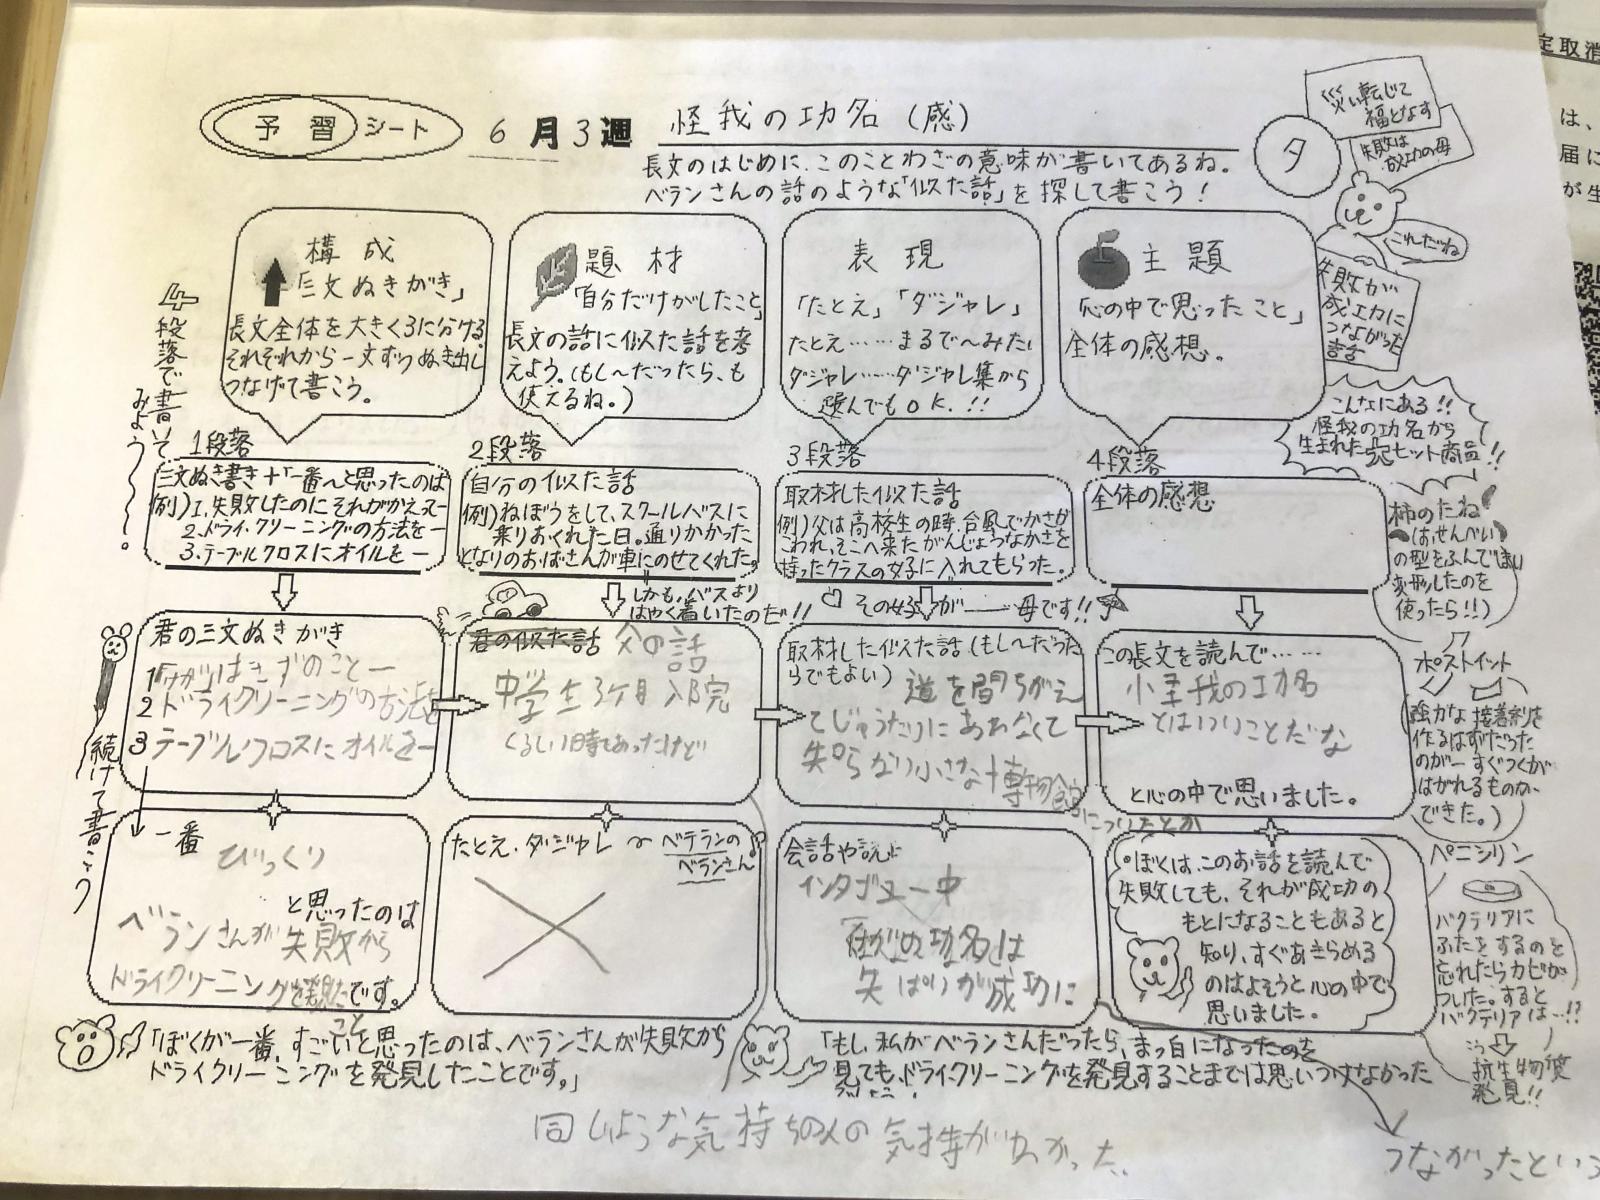 予習シート 6月3週 怪我の功名(感)
夕
長文のはじめに、このことわざの意味が書いてあるね。
ベランさんの話のような「似た話」を探して書こう!
災い転じて
福となす
失敗は
成功の母
これだね
失敗が
成功に
つながった
話
4段落で書いて
みよう〜〜。
構成
「三文ぬきがき」
長文全体を大きく3に分ける。
それぞれから一文ずつぬき出し
つなげて書こう。
題材
「自分だけがしたこと」
長文の話に似た話を考
えよう。(もし〜だったら、も
使えるね。)
表現
「たとえ」「ダジャレ」
たとえ……まるで〜みたい
ダジャレ……ダジャレ集から
選んでもOK.!!
主題
「心の中で思ったこと」
全体の感想。
こんなにある!!
怪我の功名から
生まれた大ヒット商品!!
1段落
三文ぬき書き+「一番〜と思ったのは
例)1.失敗したのにそれがかえって
2.ドライ・クリーニングの方法を―
3.テーブルクロスにオイルを―
2段落
自分の似た話
例)ねぼうをして、スクールバスに
乗りおくれた日。通りかかった
となりのおばさんが車にのせてくれた。
しかも、バスより
はやく着いたのだ!!
3段落
取材した似た話
例)父は高校生の時、台風でかさが
こわれ、そこへ来たがんじょうなかさを
持ったクラスの女子に入れてもらった。
その女子が――母です!!
4段落
全体の感想
柿のたね
(はせんべい
の型をふんで
変形したのを
使ったら!!)
君の三文ぬきがき
1「けが」はきずのこと―
2 ドライクリーニングの方法を
3 テーブルクロスにオイルを―
君の似た話 父の話
中学生3ヶ月入院
くるしい時であったけど
取材した似た話(もし〜だった
らでもよい) 道を間ちがえ
てじゅうたいにあわなくて
失 小さな博物館
につけたとか
この長文を読んで……
怪我の功名
とはいいことだな
と心の中で思いました。
ポストイット
強力な接着剤を
作るはずだった
のが―すぐつくが
はがれるものが、
できた。)
続けて書こう
一番
びっくり
と思ったのは
ベランさんが失敗から
ドライクリーニングを発見した
こと
です。
たとえ・ダジャレ 〜ベテランの
ベランさん♪
会話や説に
インタビュー中
「怪我の功名」は
失ぱいが成功に
つながったという
・ぼくは、このお話を読んで
失敗しても、それが成功の
もとになることもあると
知り、すぐあきらめる
のはよそうと心の中で
思いました。
ペニシリン
バクテリアに
ふたをするのを
忘れたらカビが
ついた。すると
バクテリアは…!?
抗生物質
発見!!
「ぼくが一番、すごいと思ったのは、ベランさんが失敗から
ドライクリーニングを発見したことです。」
「もし、私がベランさんだったら、まっ白になったのを
見ても、ドライクリーニングを発見することまでは思いつけなかった
でしょう。
同じような気持ちの人の気持がわかった
定取消
は、
届に
が生